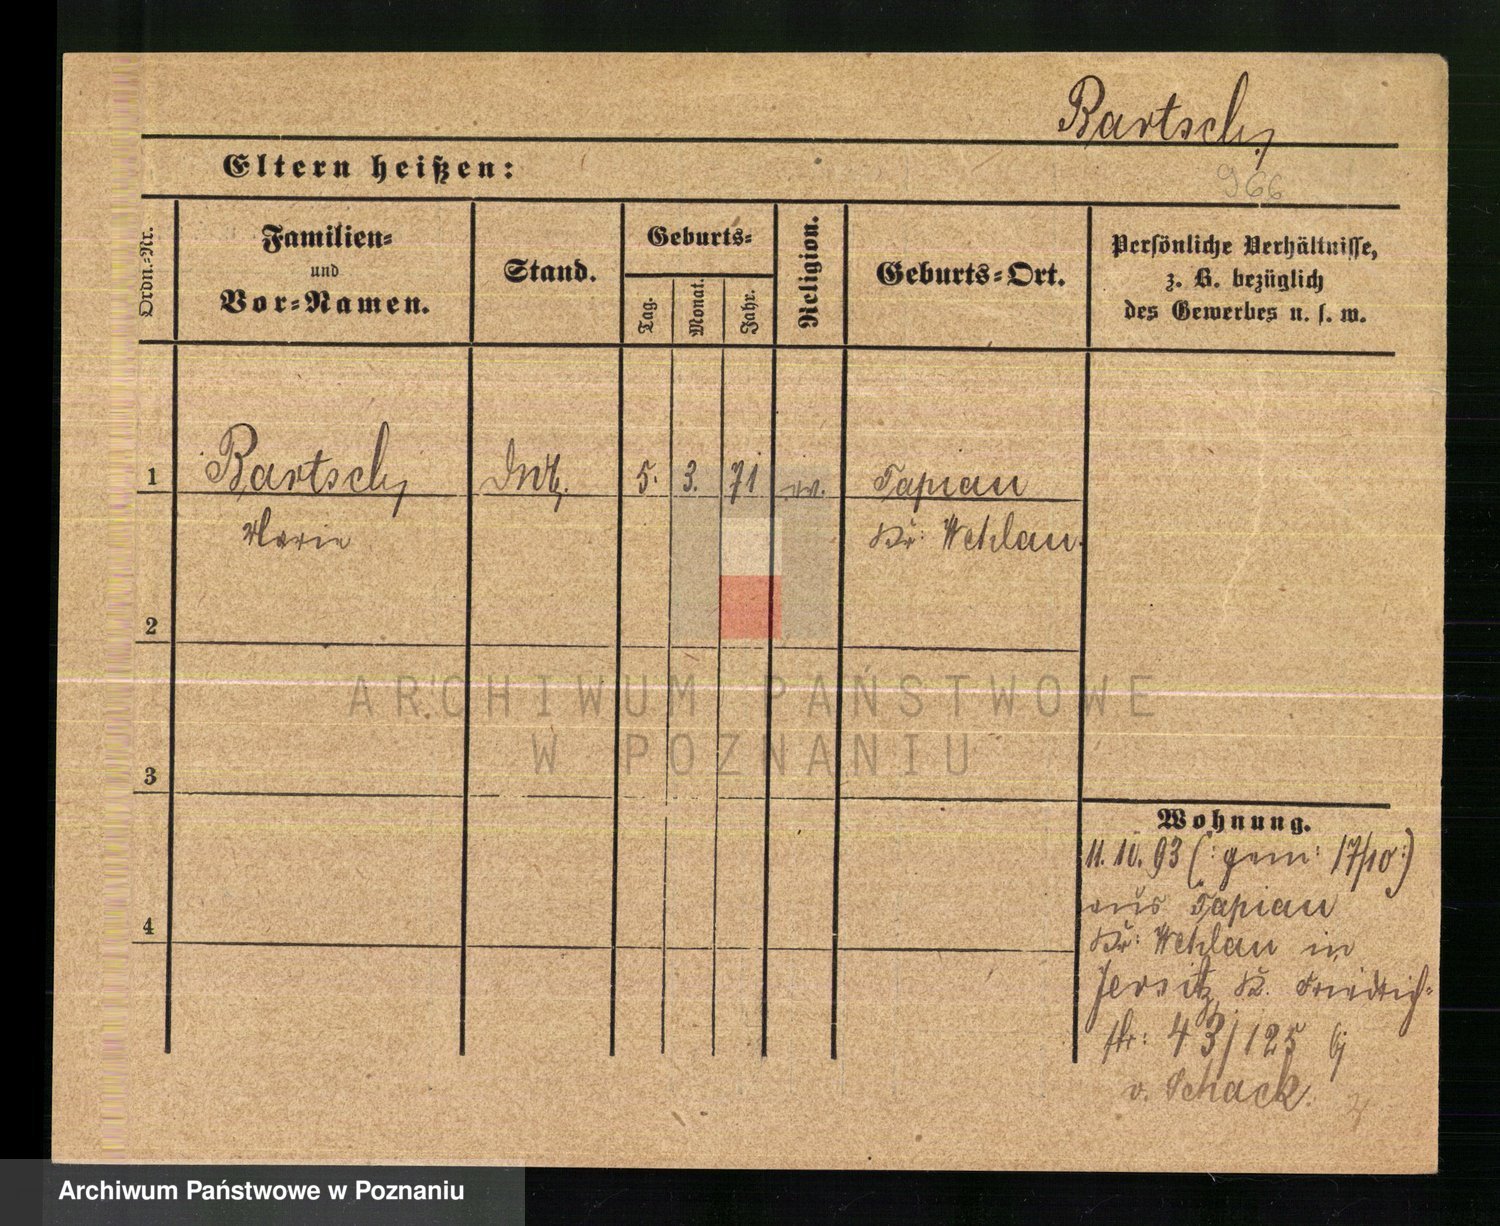 Bartsch,
966
Eltern heißen:
Ordn.-Nr.
Familien-
und
Vor-Namen.
Stand.
Geburts-
Tag.
Monat.
Jahr.
Religion.
Geburts-Ort.
Persönliche Verhältnisse,
z. B. bezüglich
des Gewerbes u. s. w.
1 Bartsch, 5. 3. 71 ev. Tapiau
Marie Kr: Wehlau.
2
3
4
Wohnung.
11. 10. 93 (: gem: 17/10:)
aus Tapiau
Kr: Wehlau in
Jersitz Kl. Friedrich-
str: 43/125 bj
v. Schack.
ARCHIWUM PAŃSTWOWE
W POZNANIU
Archiwum Państwowe w Poznaniu